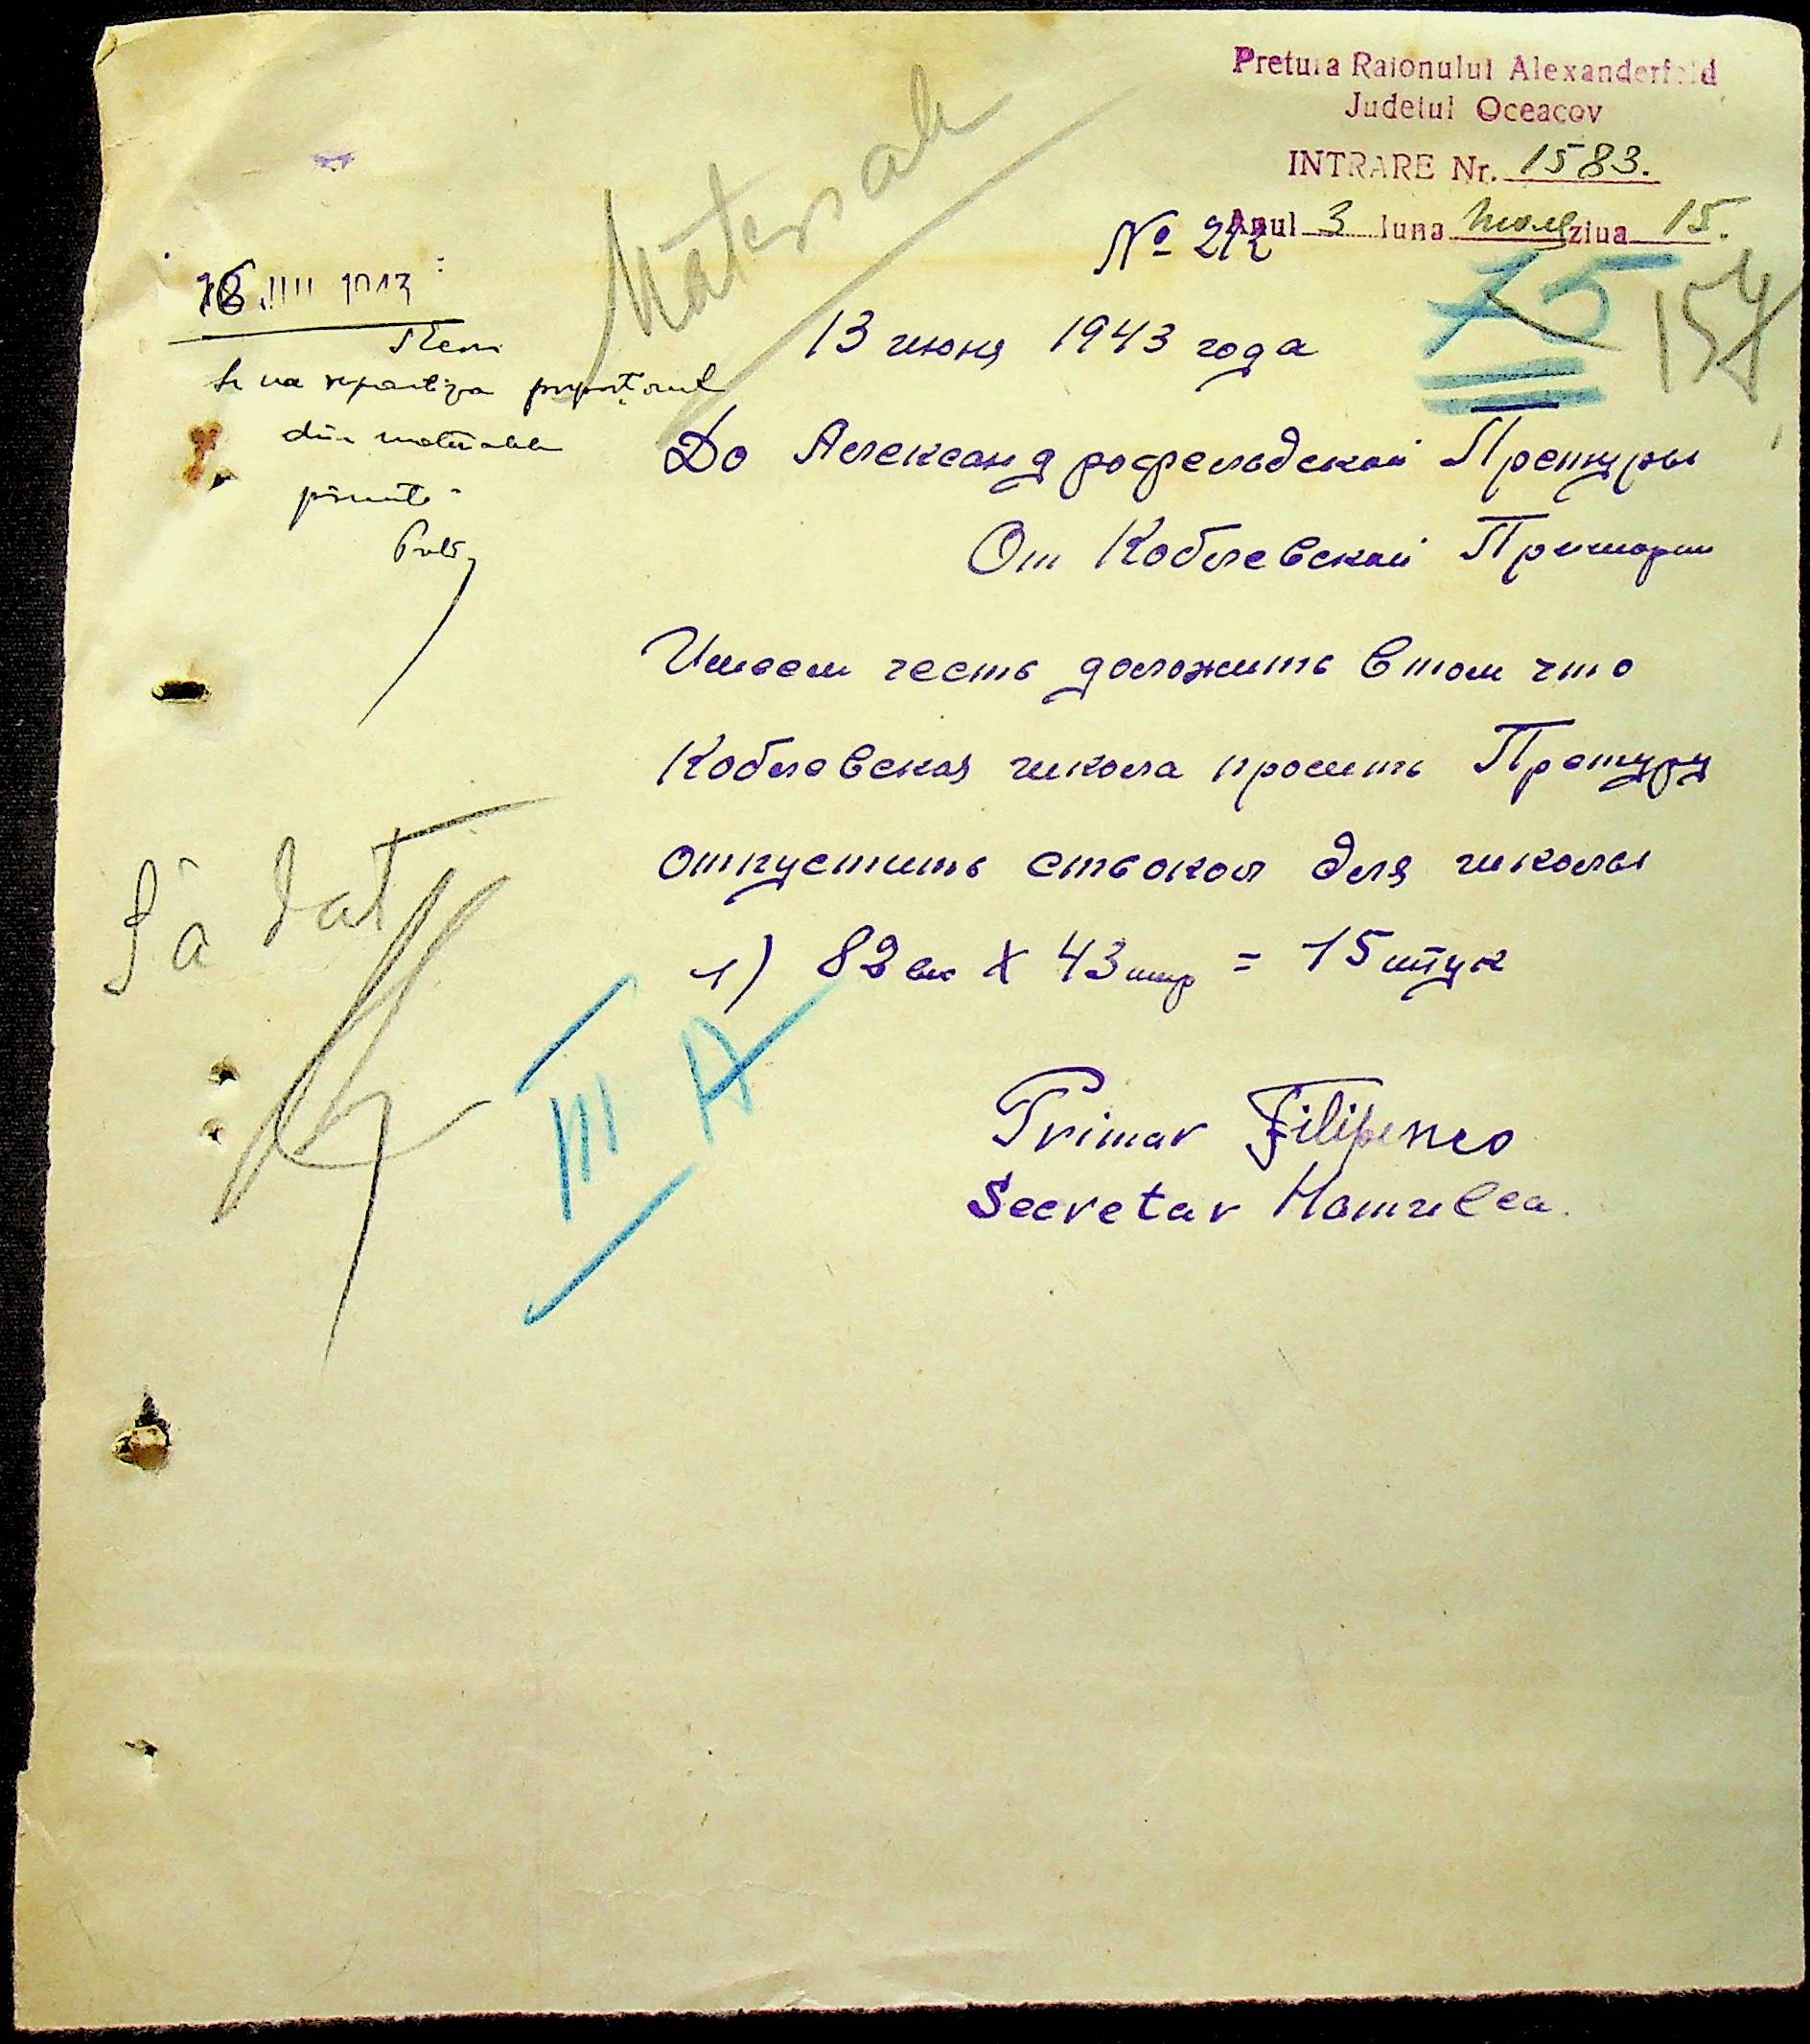 Pretura Raionului Alexanderfeld
Judetul Oceacov
INTRARE Nr. 1583.
Anul 3 luna Июня ziua 15.
№ 212
75
157
Materiale
13 июня 1943 года
До Александрофельдской Претуры
От Коблевской Примарии
Имеем честь доложить в том что
Коблевская школа просить Претуру
отпустить стьокол для школы
1) 82 вы X 43 шир = 15 штук
Primar Filipenco
Secretar
Se va repartiza
din materialele
primite
Să dat
III A